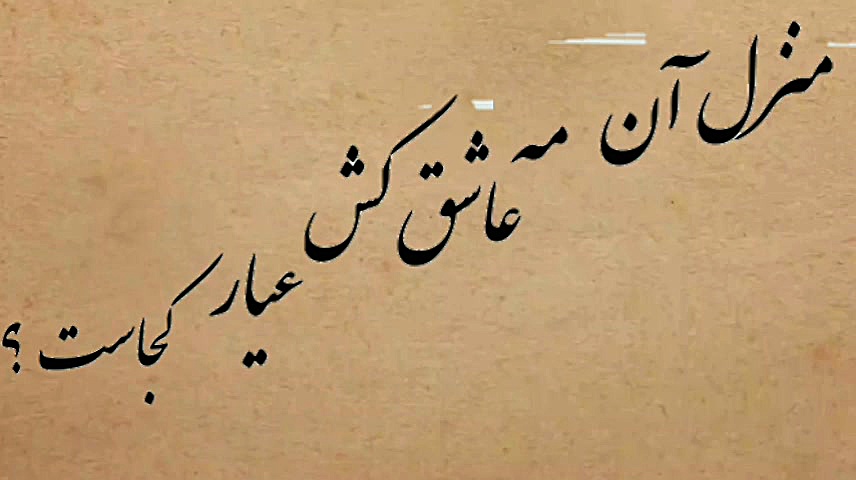 منزل آن مه عاشق کش عیار کجاست؟